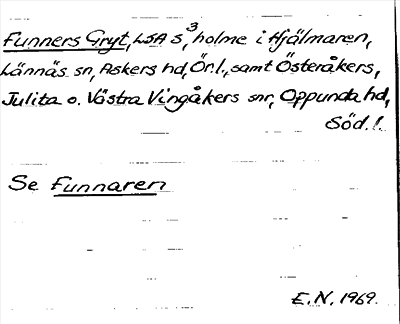 Funners Gryt, LSA S³, holme i Hjälmaren,
Lännäs sn, Askers hd, Ör.l., samt Österåkers,
Julita o. Västra Vingåkers snr, Oppunda hd,
Söd.l.
Se Funnaren
E.N. 1969.